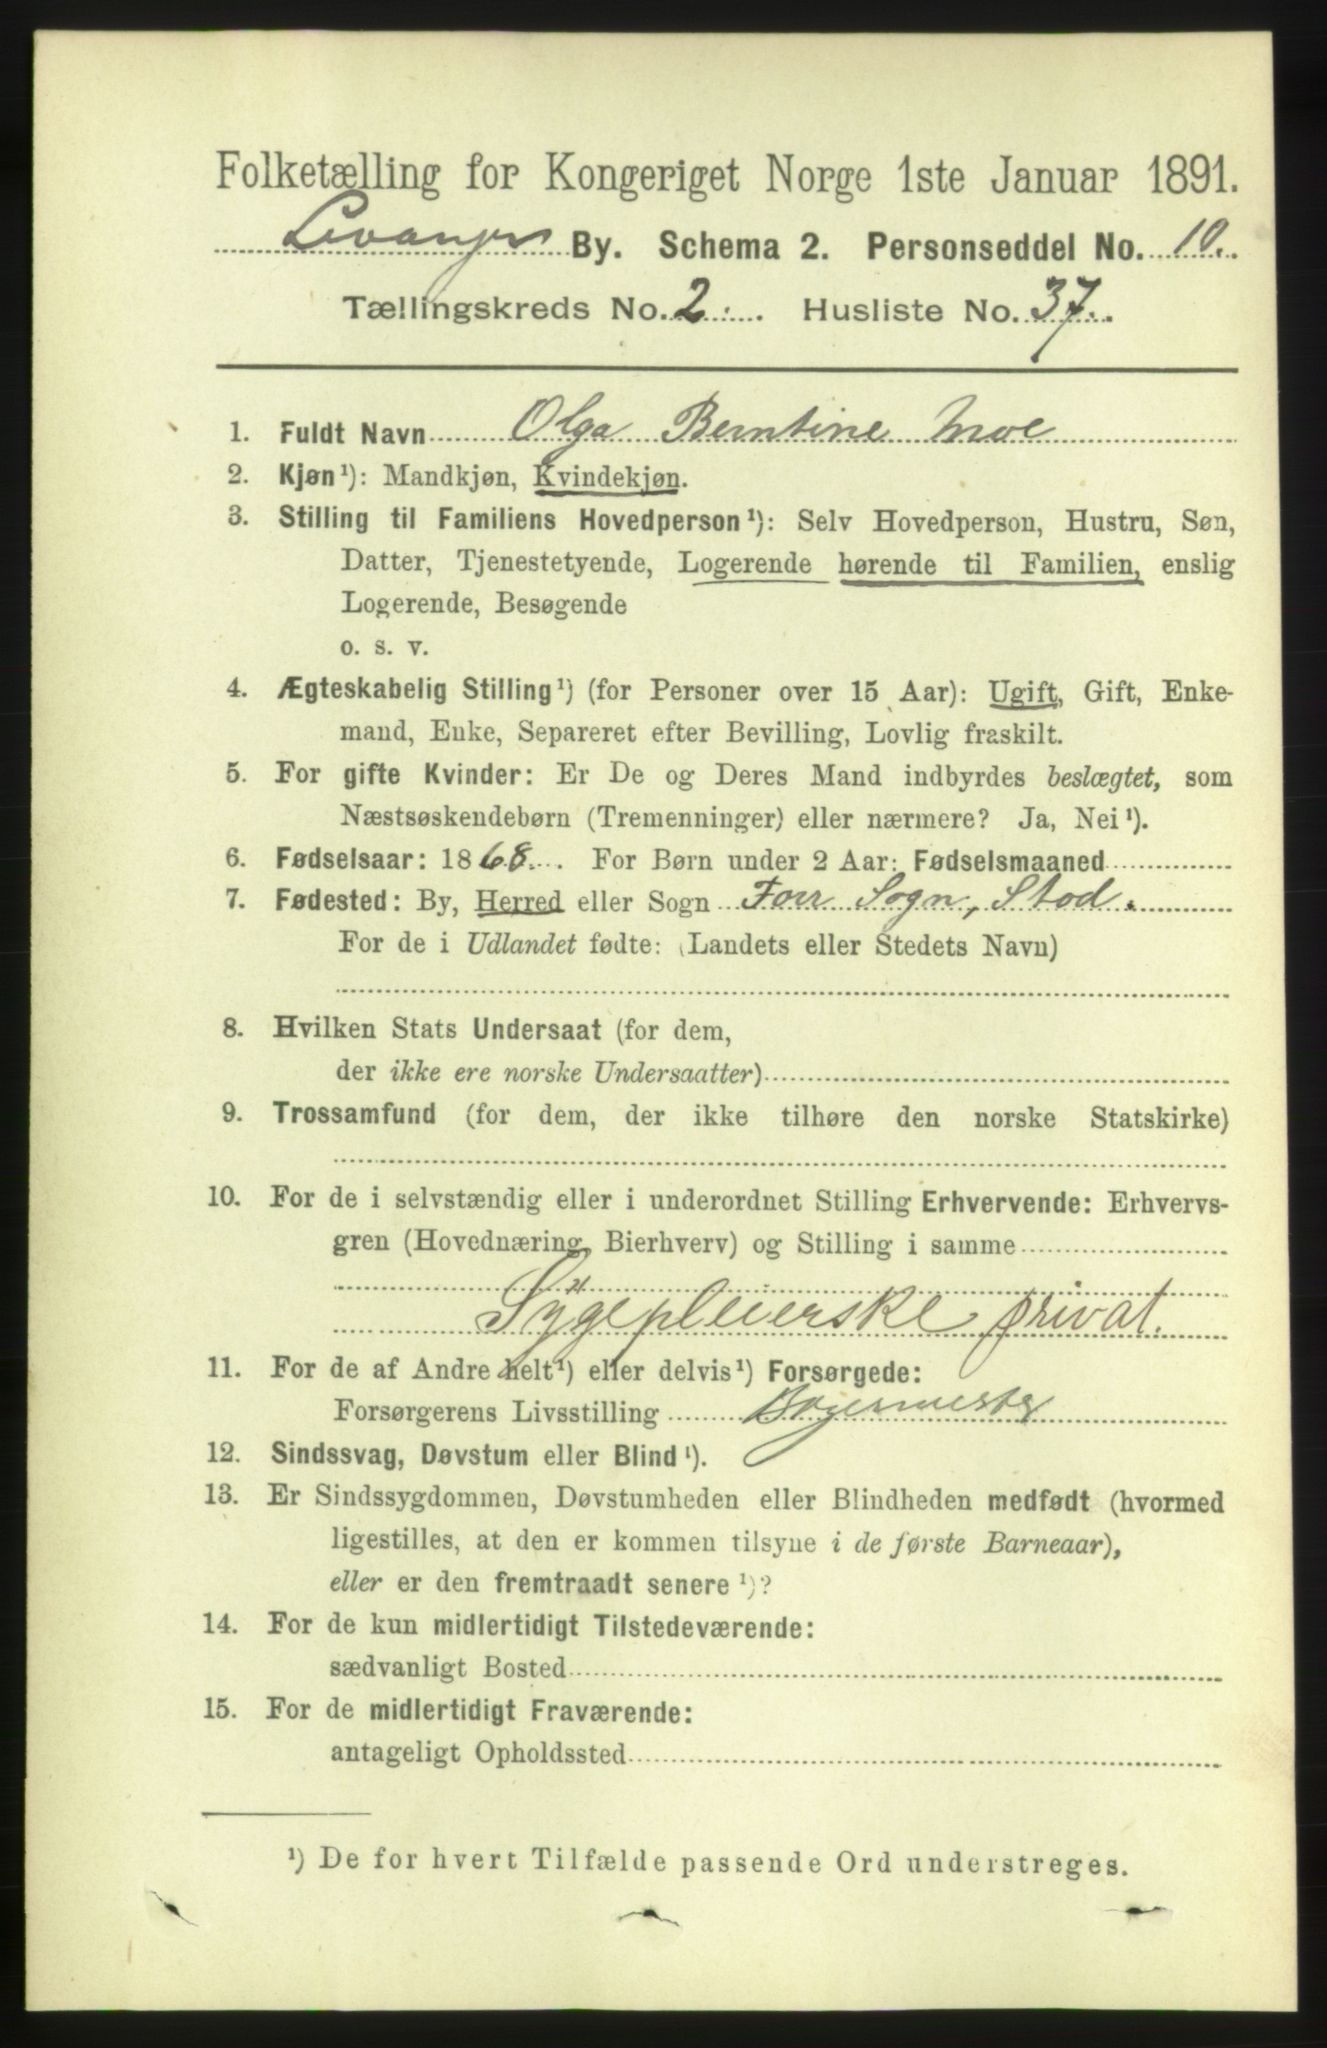 Folketælling for Kongeriget Norge 1ste Januar 1891.
Levanger By. Schema 2. Personseddel No. 10.
Tællingskreds No. 2. Husliste No. 37.
1. Fuldt Navn Olga Berntine Moe
2. Kjøn¹): Mandkjøn, Kvindekjøn.
3. Stilling til Familiens Hovedperson¹): Selv Hovedperson, Hustru, Søn,
Datter, Tjenestetyende, Logerende hørende til Familien, enslig
Logerende, Besøgende
o. s. v.
4. Ægteskabelig Stilling¹) (for Personer over 15 Aar): Ugift, Gift, Enke-
mand, Enke, Separeret efter Bevilling, Lovlig fraskilt.
5. For gifte Kvinder: Er De og Deres Mand indbyrdes beslægtet, som
Næstsøskendebørn (Tremenninger) eller nærmere? Ja, Nei¹).
6. Fødselsaar: 1868. For Børn under 2 Aar: Fødselsmaaned
7. Fødested: By, Herred eller Sogn For Sogn, Stod.
For de i Udlandet fødte: (Landets eller Stedets Navn)
8. Hvilken Stats Undersaat (for dem,
der ikke ere norske Undersaatter)
9. Trossamfund (for dem, der ikke tilhøre den norske Statskirke)
10. For de i selvstændig eller i underordnet Stilling Erhvervende: Erhvervs-
gren (Hovednæring, Bierhverv) og Stilling i samme
Sygepleierske privat.
11. For de af Andre helt¹) eller delvis¹) Forsørgede:
Forsørgerens Livsstilling
12. Sindssvag, Døvstum eller Blind¹).
13. Er Sindssygdommen, Døvstumheden eller Blindheden medfødt (hvormed
ligestilles, at den er kommen tilsyne i de første Barneaar),
eller er den fremtraadt senere¹)?
14. For de kun midlertidigt Tilstedeværende:
sædvanligt Bosted
15. For de midlertidigt Fraværende:
antageligt Opholdssted
¹) De for hvert Tilfælde passende Ord understreges.